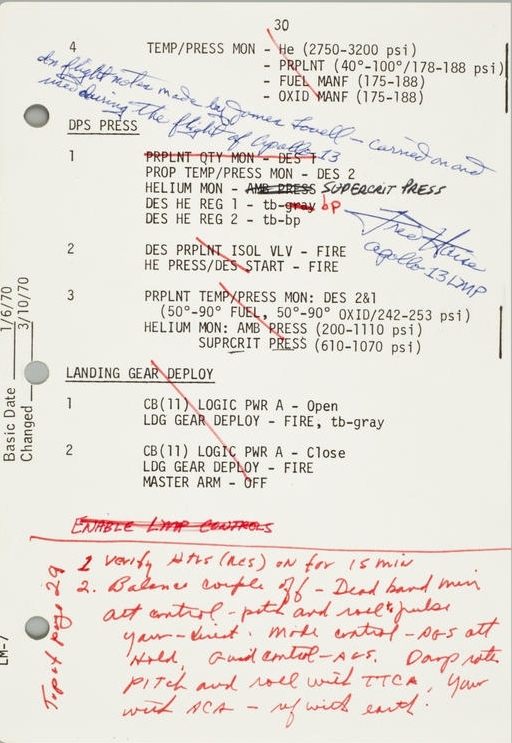 30
4 TEMP/PRESS MON - He (2750-3200 psi)
- PRPLNT (40°-100°/178-188 psi)
- FUEL MANF (175-188)
- OXID MANF (175-188)
In flight notes made by James Lovell - carried on and
used during the flight of Apollo 13
DPS PRESS
1 PRPLNT QTY MON - DES 1
PROP TEMP/PRESS MON - DES 2
HELIUM MON - AMB PRESS SUPERCRIT PRESS
DES HE REG 1 - tb-gray bp
DES HE REG 2 - tb-bp
Fred Haise
Apollo 13 LMP
2 DES PRPLNT ISOL VLV - FIRE
HE PRESS/DES START - FIRE
3 PRPLNT TEMP/PRESS MON: DES 2&1
(50°-90° FUEL, 50°-90° OXID/242-253 psi)
HELIUM MON: AMB PRESS (200-1110 psi)
SUPRCRIT PRESS (610-1070 psi)
LANDING GEAR DEPLOY
1 CB(11) LOGIC PWR A - Open
LDG GEAR DEPLOY - FIRE, tb-gray
2 CB(11) LOGIC PWR A - Close
LDG GEAR DEPLOY - FIRE
MASTER ARM - OFF
Basic Date 1/6/70
Changed 3/10/70
LM-7
ENABLE LMP CONTROLS
Top of page 29
1 Verify (AGS) on for 15 min
2. Balance couple off - Dead band min
att control - pitch and roll pulse
yaw - direct. Mode control - AGS att
Hold, Guid control - AGS. Damp rates
Pitch and roll with TTCA, Yaw
with ACA - with earth.